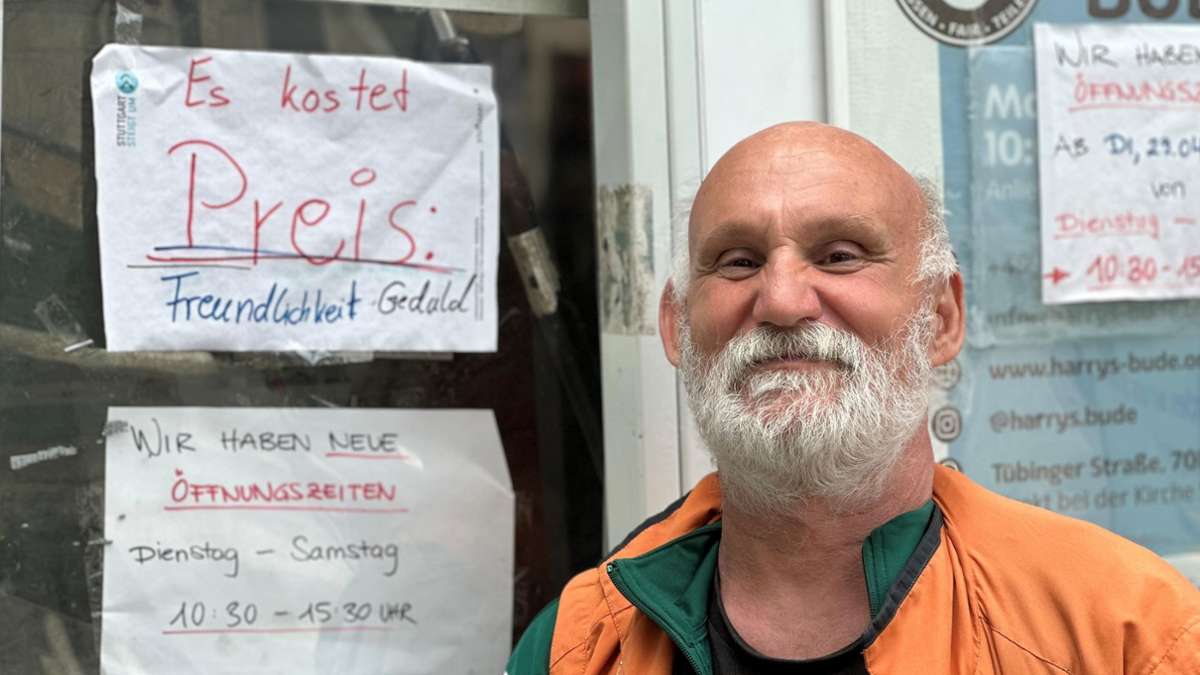 STUTTGART
STEIGT UM
Es kostet
Preis:
Freundlichkeit Gedald
WIR HABEN NEUE
ÖFFNUNGSZEITEN
Dienstag – Samstag
10:30 – 15:30 UHR
FAIR
WIR HABEN
AB DI,
von
Dienstag –
10:30-15
10:
www.harrys-bude.
@harrys.bude
Tübinger Straße,
bei der Kirche